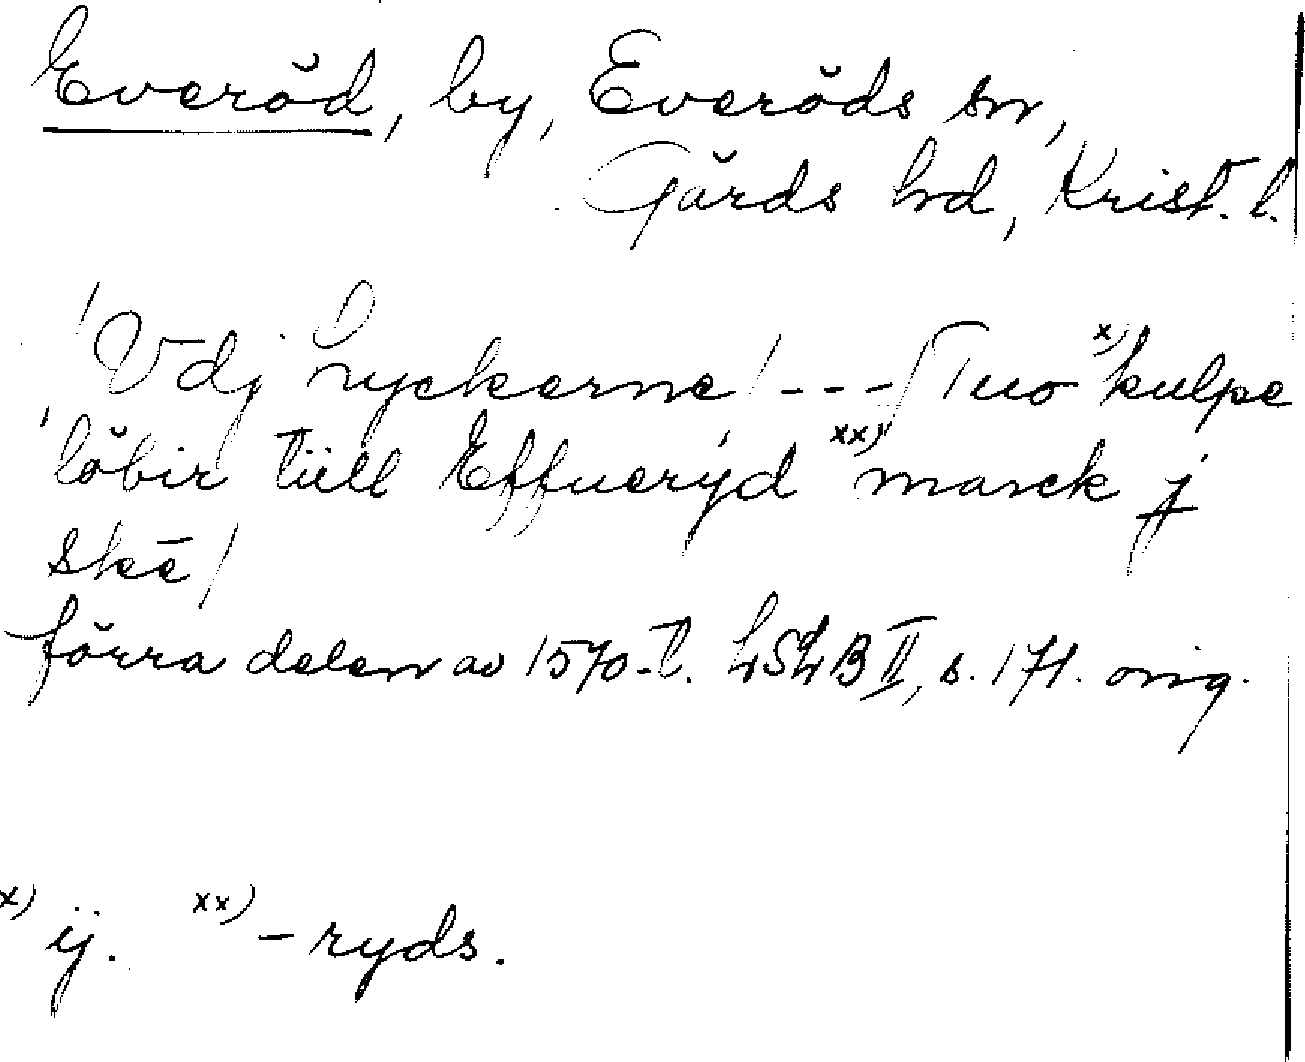 Everöd, by, Everöds sn,
Gärds hd, Krist. l.
/Vdj Lyckerne/ --- /Tuo x) kulpe
löbir tiill Effuerÿd xx) marck j
skē/
förra delen av 1570-t. LSLB II, s. 171. orig.
x) ij. xx) -ryds.